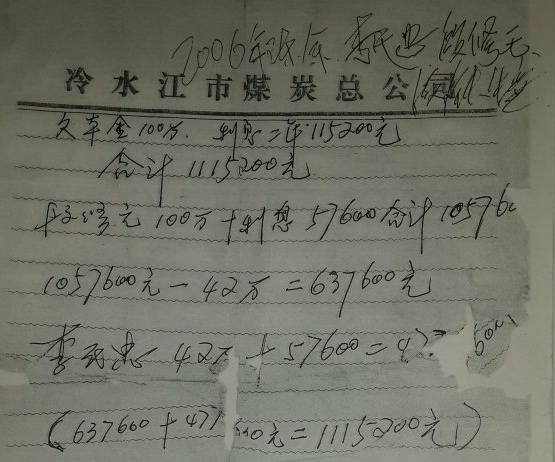 2006年底 李民忠 段修元
冷水江市煤炭总公司
欠本金100万. 利息二年115200元
合计 1115200元
段修元 100万+利息 57600合计 10576
1057600元-42万=637600元
李民忠 42万+57600=47
(637600+47 00元=1115200元)